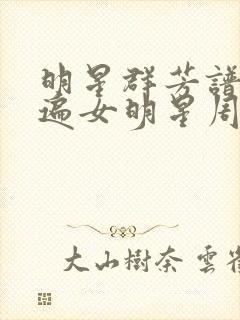 明星群芳譜
遍女明星周
大山樹奈 雲雀